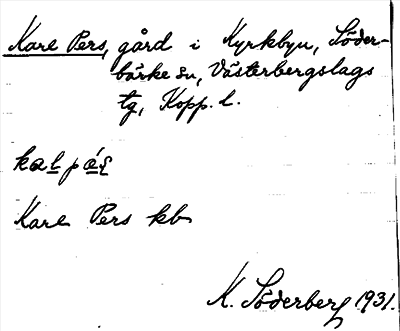 Karl Pers, gård i Kyrkbyn, Söder-
bärke sn, Västerbergslags
tg, Kopp. l.
Karl Pers kb
K. Söderberg 1931.